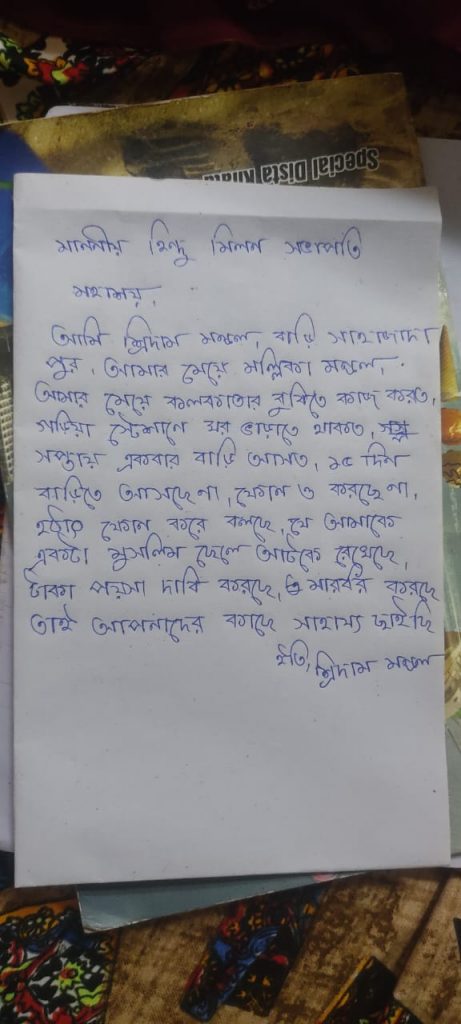 Special Dista
মাননীয় হিন্দু মিলন সভাপতি
মহাশয়,
আমি শ্রিদাম মন্ডল, বাড়ি সাহাজাদা
পুর, আমার মেয়ে মল্লিকা মন্ডল,
আমার মেয়ে কলকাতার বুথিতে কাজ করত,
গড়িয়া স্টেশানে ঘর ভাড়াতে থাকত,
সপ্তায় একবার বাড়ি আসত, ১৫ দিন
বাড়িতে আসছে না, ফোন ও করছে না,
হঠাৎ ফোন করে বলছে, যে আমাকে
একটা মুসলিম ছেলে আটকে রেখেছে,
টাকা পয়সা দাবি করছে, মারধর করছে
তাই আপনাদের কাছে সাহায্য চাইছি
ইতি, শ্রিদাম মন্ডল